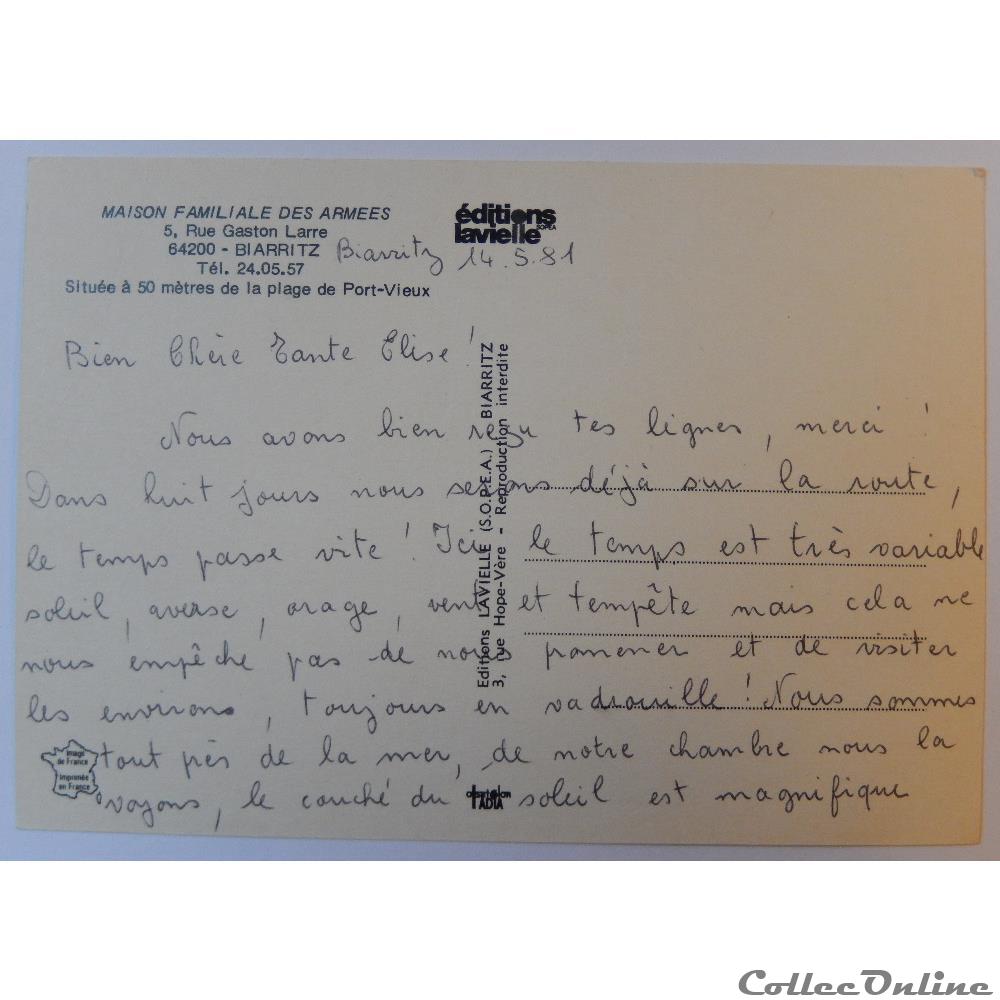 MAISON FAMILIALE DES ARMEES
5, Rue Gaston Larre
64200 - BIARRITZ
Tél. 24.05.57
Située à 50 mètres de la plage de Port-Vieux
éditions
lavielle SOPEA
Biarritz 14.5.81
Editions LAVIELLE (S.O.P.E.A.) BIARRITZ
3, rue Hope-Vère - Reproduction interdite
Bien Chère Tante Elise!
Nous avons bien reçu tes lignes, merci!
Dans huit jours nous serons déjà sur la route,
le temps passe vite! Ici le temps est très variable
soleil, averse, orage, vent et tempête mais cela ne
nous empêche pas de nous promener et de visiter
les environs, toujours en vadrouille! Nous sommes
tout près de la mer, de notre chambre nous la
voyons, le couché du soleil est magnifique
image
de France
imprimée
en France
CollecOnline